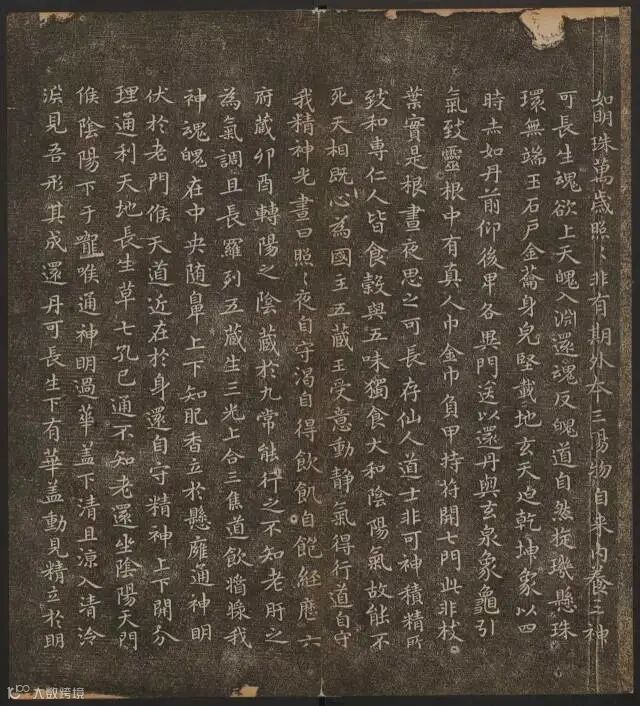 如眀珠萬歲照〻非有期外本三陽物自来內養三神
可長生魂欲上天魄入淵還魂反魄道自然㨁璣懸珠
環無端玉石戶金蘥身皃堅載地玄天迫乾坤象以四
時赤如丹前仰後畀各異門送以還丹與玄泉象龜引
氣致靈根中有真人巾金巾負甲持符開七門此非枝
葉實是根晝夜思之可長存仙人道士非可神積精所
致和專仁人皆食穀與五味獨食大和陰陽氣故能不
死天相既心為國王五藏王受意動静氣得行道自守
我精神光晝日照〻夜自守渴自得飲飢自飽經歷六
府藏卯酉轉陽之陰藏於九常能行之不知老肝之
為氣調且長羅列五藏生三光上合三焦道飲醬䊢我
神魂魄在中央随鼻上下知肥香立於懸廱通神明
伏於老門候天道近在於身還自守精神上下開分
理通利天地長生草七孔已通不知老還坐陰陽天門
候陰陽下于嚨喉通神明過華蓋下清且涼入清泠
淵見吾形其成還丹可長生下有華盖動見精立於明
大数跨境